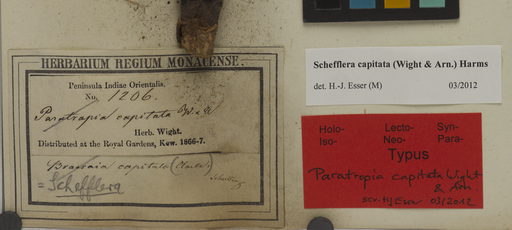 HERBARIUM REGIUM MONACENSE.
Peninsula Indiae Orientalis.
No. 1206.
Paratropia capitata W. & A.
Herb. Wight.
Distributed at the Royal Gardens, Kew. 1866-7.
Brassaia capitata (Clarke)
= Schefflera
Schefflera capitata (Wight & Arn.) Harms
det. H.-J. Esser (M) 03/2012
Holo- Lecto- Syn-
Iso- Neo- Para-
Typus
Paratropia capitata Wight
& Arn
scr. HJ Esser 03/2012